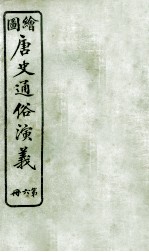 繪圖
唐史通俗演義
第六冊